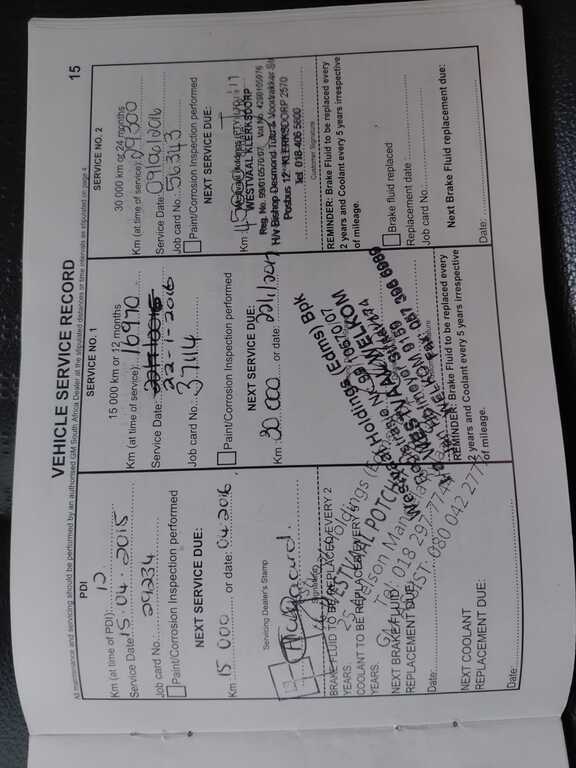 15
VEHICLE SERVICE RECORD
All maintenance and servicing should be performed by an authorised GM South Africa Dealer at the stipulated distances or time intervals as stipulated on page 4
PDI
Km (at time of PDI): 12
Service Date: 15.04.2015
Job card No. 29234
Paint/Corrosion Inspection performed
NEXT SERVICE DUE:
Km 15 000 or date: 04.2016
Servicing Dealer's Stamp
BRAKE FLUID TO BE REPLACED EVERY 2
YEARS.
COOLANT TO BE REPLACED EVERY 5
YEARS.
NEXT BRAKE FLUID
REPLACEMENT DUE:
Date:
NEXT COOLANT
REPLACEMENT DUE:
Date:
WESTVAAL POTCH
Nelson Man
018 297 774
080 042 277
SERVICE NO. 1
15 000 km or 12 months
Km (at time of service): 16970
Service Date: 22-1-2016
Job card No. 37114
Paint/Corrosion Inspection performed
NEXT SERVICE DUE:
Km 30 000 or date: 22/1/2017
Holdings (Edms) Bpk
WESTVAAL WELKOM
REMINDER: Brake Fluid to be replaced every
2 years and Coolant every 5 years irrespective
of mileage.
SERVICE NO. 2
30 000 km or 24 months
Km (at time of service):
Service Date:
Job card No. 56343
Paint/Corrosion Inspection performed
NEXT SERVICE DUE:
Km
WESTVAAL KLERKSDORP
H/v Bishop Desmond Tutu & Voortrekker St
Posbus 12 KLERKSDORP 2570
Tel: 018-406 5600
Customer Signature
REMINDER: Brake Fluid to be replaced every
2 years and Coolant every 5 years irrespective
of mileage.
Brake fluid replaced
Replacement date:
Job card No.
Next Brake Fluid replacement due:
Date: